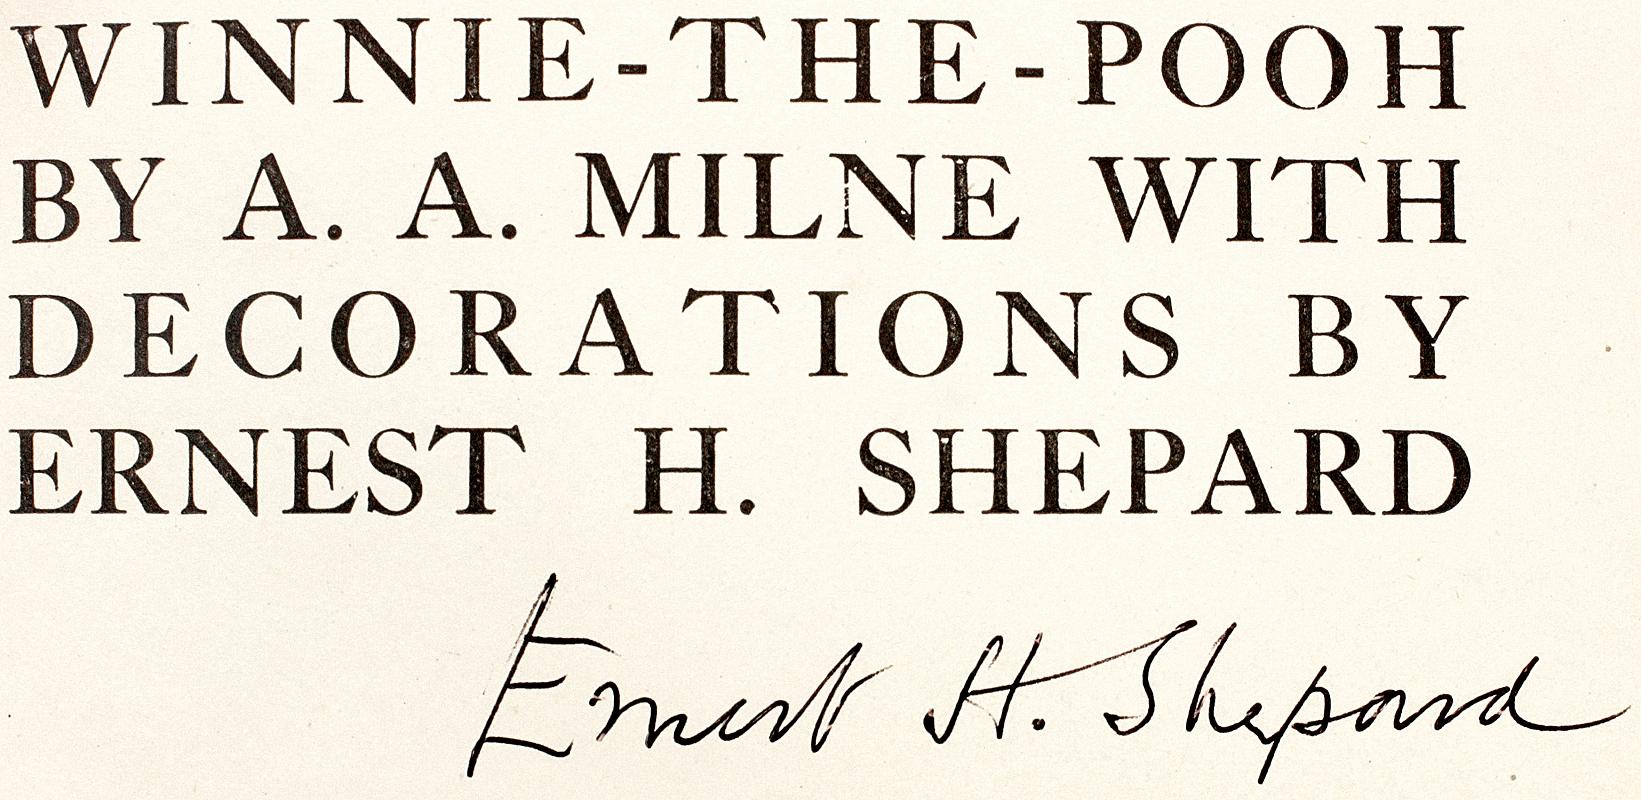 WINNIE-THE-POOH
BY A. A. MILNE WITH
DECORATIONS BY
ERNEST H. SHEPARD
Ernest H. Shepard